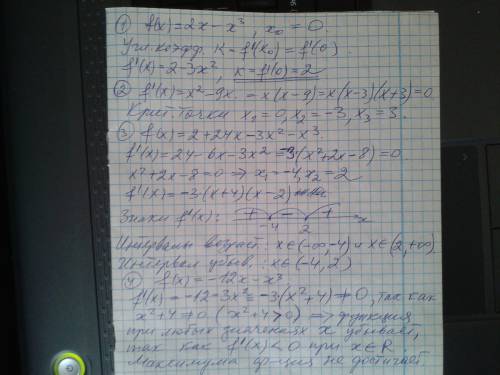 ① f(x)=2x-x³, x₀=0.
Угл. коэфф. k=f'(x₀)=f'(0)
f'(x)=2-3x², k=f'(0)=2
② f'(x)=x²-9x = x(x-9)=x(x-3)(x+3)=0
Крит. точки x₁=0, x₂=-3, x₃=3.
③ f(x)=2+24x-3x²-x³.
f'(x)=24-6x-3x²=-3(x²+2x-8)=0
x²+2x-8=0 ⇒ x₁=-4, x₂=2
f'(x)=-3(x+4)(x-2)
Знаки f'(x): + - + -4 2 x
Интервалы возраст.: x∈(-∞,-4) и x∈(2,+∞)
Интервал убыв.: x∈(-4,2)
④ f(x)=-12x-x³
f'(x)=-12-3x²=-3(x²+4)≠0, так как
x²+4≠0 (x²+4>0) ⇒ функция
при любых значениях x убывает,
так как f'(x)<0 при x∈R
Максимума ф-ция не достигает.